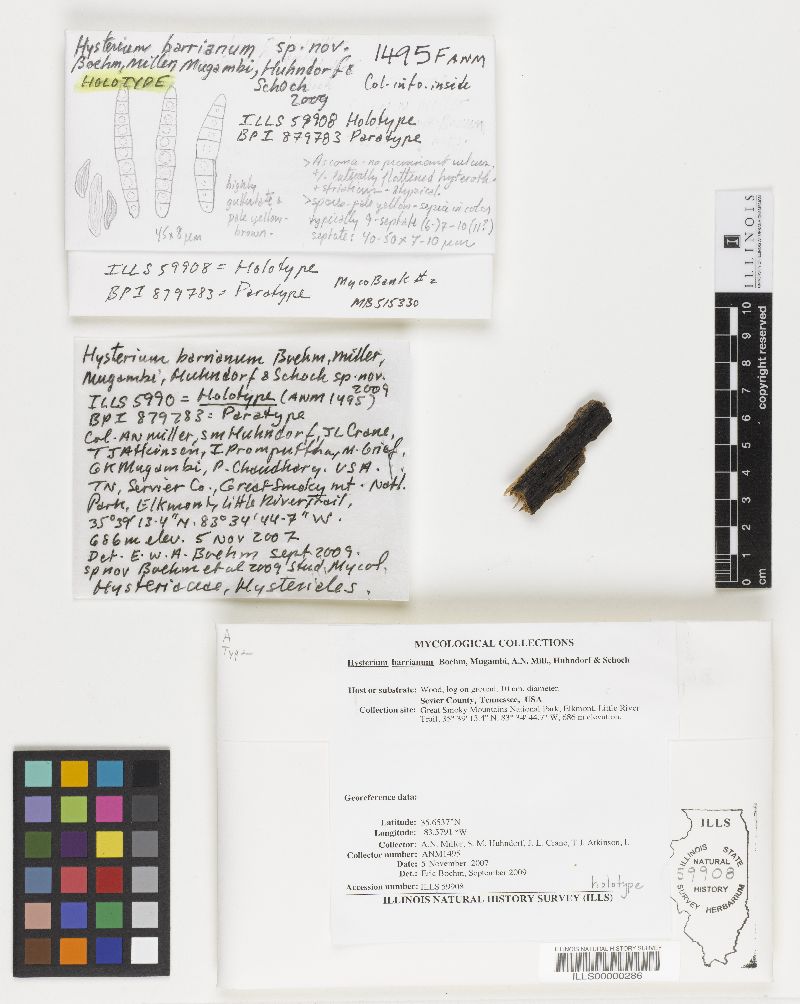 Hysterium barrianum sp. nov.
Boehm, Miller, Mugambi, Huhndorf &
Schoch
2009
HOLOTYPE
1495F ANM
Col. info. inside
ILLS 59908 Holotype
BPI 879783 Paratype
highly
guttulate &
pale yellow-
brown.
45 x 8 µm
> Ascoma - no prominent
+/- laterally flattened hysteroth.
+ striations - atypical.
> spores - pale yellow - sepia in color
typically 9-septate (6-)7-10(11?)
septate: 40-50 x 7-10 µm
ILLS 59908 = Holotype
BPI 879783 = Paratype
MycoBank #=
MB515330
Hysterium barrianum Boehm, Miller,
Mugambi, Huhndorf & Schoch sp. nov.
2009
ILLS 5990 = Holotype (ANM 1495)
BPI 879783 = Paratype
Col. AN Miller, SM Huhndorf, JL Crane,
TJ Atkinson, I Promputtha, M. Grief,
GK Mugambi, P. Chaudhary. USA.
TN, Servier Co., Great Smoky mt. Natl.
Park, Elkmont, Little River Trail,
35°39'13.4"N. 83°34'44.7"W.
686m elev. 5 Nov 2007
Det. E. W. A. Boehm Sept 2009.
sp nov Boehm et al 2009 Stud. Mycol.
Hysteriaceae, Hysteriales.
ILLINOIS
copyright reserved
0 1 2 3 4 5 6 7 8 9 10
cm
A
Type
MYCOLOGICAL COLLECTIONS
Hysterium barrianum Boehm, Mugambi, A.N. Mill., Huhndorf & Schoch
Host or substrate: Wood, log on ground, 10 cm. diameter.
Sevier County, Tennessee, USA
Collection site: Great Smoky Mountains National Park, Elkmont, Little River
Trail, 35° 39' 13.4" N, 83° 34' 44.7" W, 686 m elevation.
Georeference data:
Latitude: 35.6537°N
Longitude: -83.5791 °W
Collector: A.N. Miller, S. M. Huhndorf, J. L. Crane, T J. Atkinson, I.
Collector number: ANM1495
Date: 5 November 2007
Det.: Eric Boehm, September 2009
Accession number: ILLS 59908
holotype
ILLINOIS NATURAL HISTORY SURVEY (ILLS)
ILLS
ILLINOIS STATE
NATURAL
59908
HISTORY
SURVEY HERBARIUM
ILLINOIS NATURAL HISTORY SURVEY
ILLS00000286